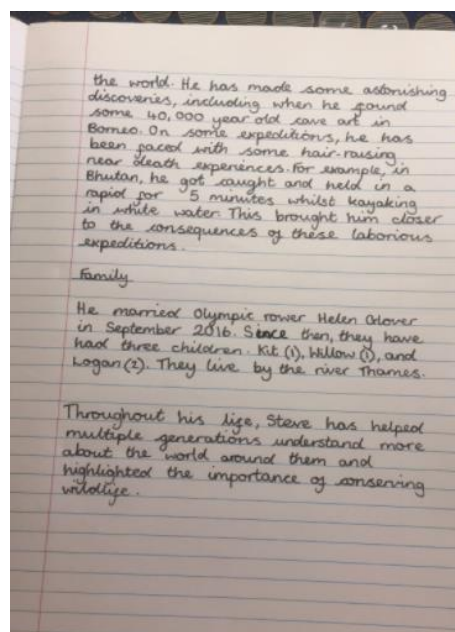 the world. He has made some astonishing
discoveries, including when he found
some 40,000 year old cave art in
Borneo. On some expeditions, he has
been faced with some hair-raising
near death experiences. For example, in
Bhutan, he got caught and held in a
rapid for 5 minutes whilst kayaking
in white water. This brought him closer
to the consequences of these laborious
expeditions.
Family
He married Olympic rower Helen Glover
in September 2016. Since then, they have
had three children. Kit (1), Willow (1), and
Logan (2). They live by the river Thames.
Throughout his life, Steve has helped
multiple generations understand more
about the world around them and
highlighted the importance of conserving
wildlife.